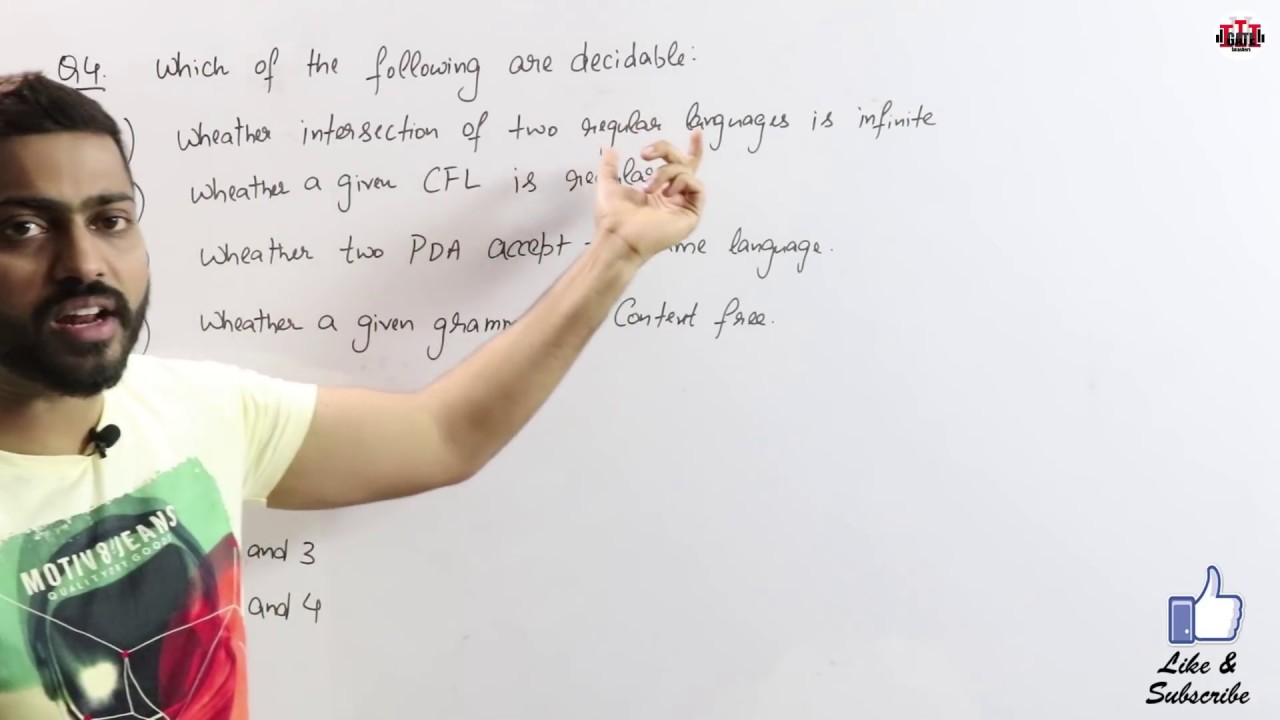 Q4. Which of the following are decidable:
) Wheather intersection of two regular languages is infinite
) Wheather a given CFL is regular
Wheather two PDA accept language.
) Wheather a given Context free.
and 3
and 4
MOTIV8 JEANS
GATE
Smashers
Like &
Subscribe